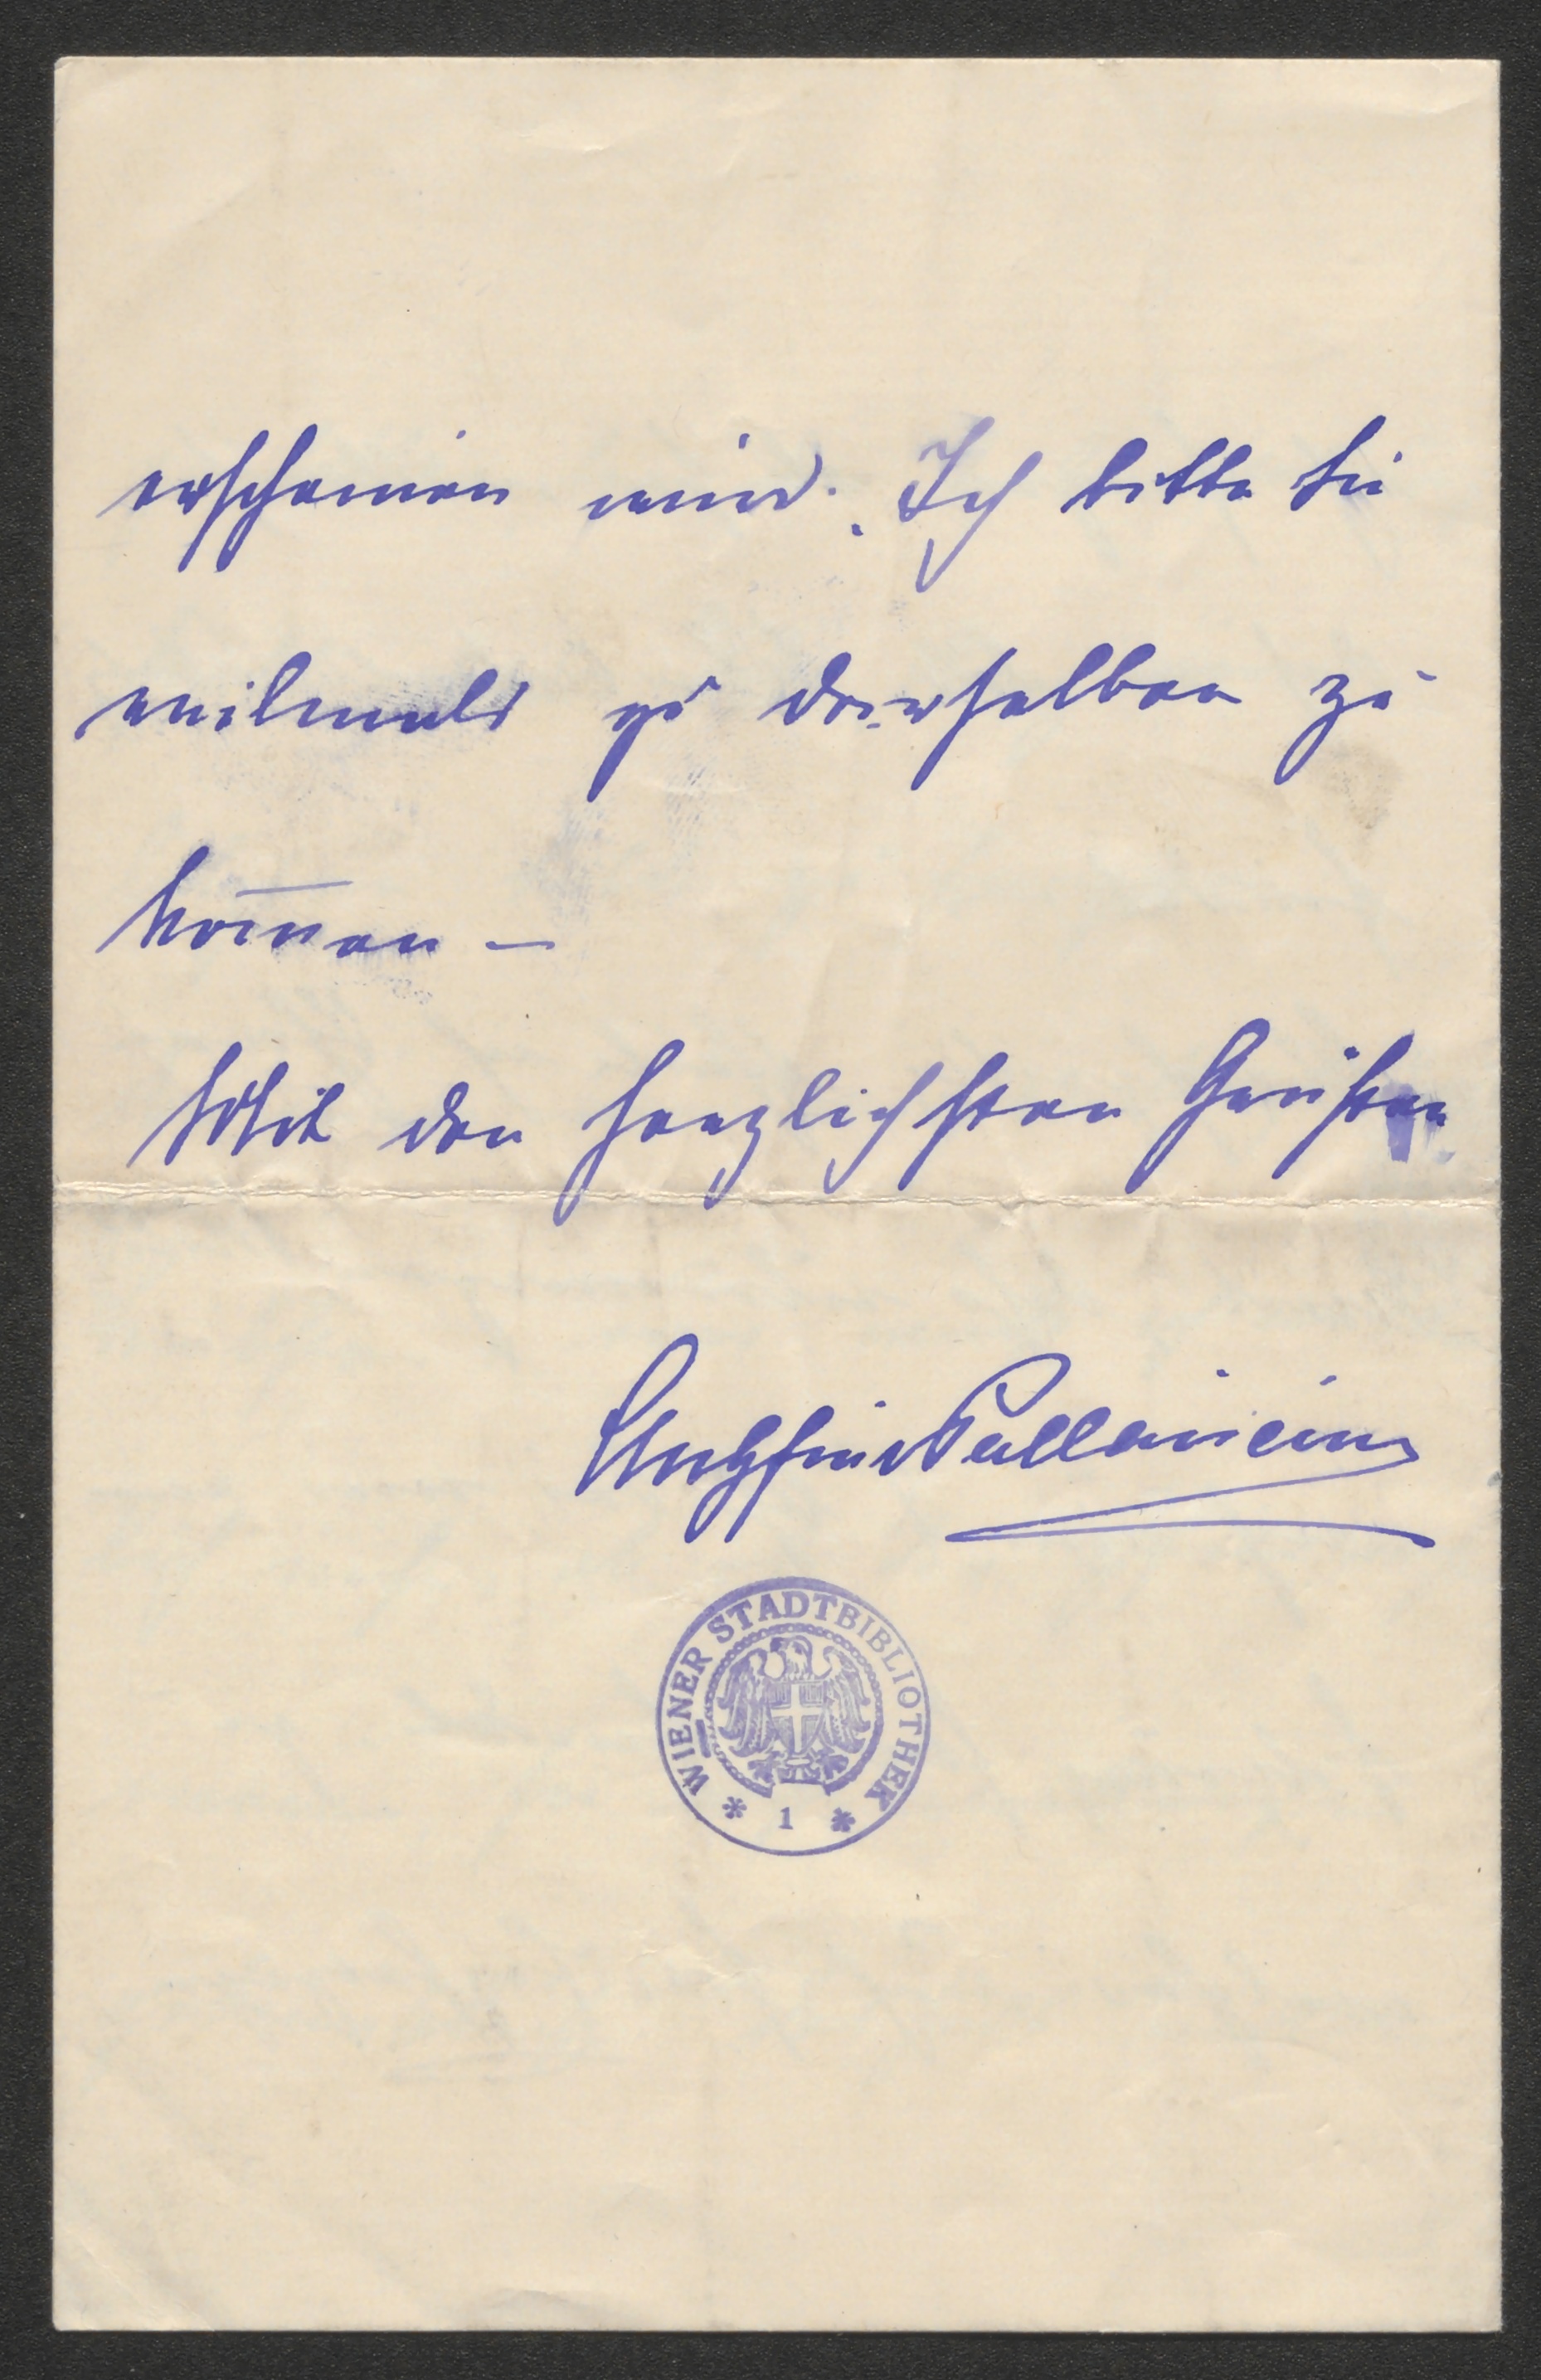 erscheinen wird. Ich bitte Sie
vielmals zu derselben zu
kom̅en –
Mit den herzlichsten Grüßen
Pallavicini
WIENER STADTBIBLIOTHEK
* 1 *